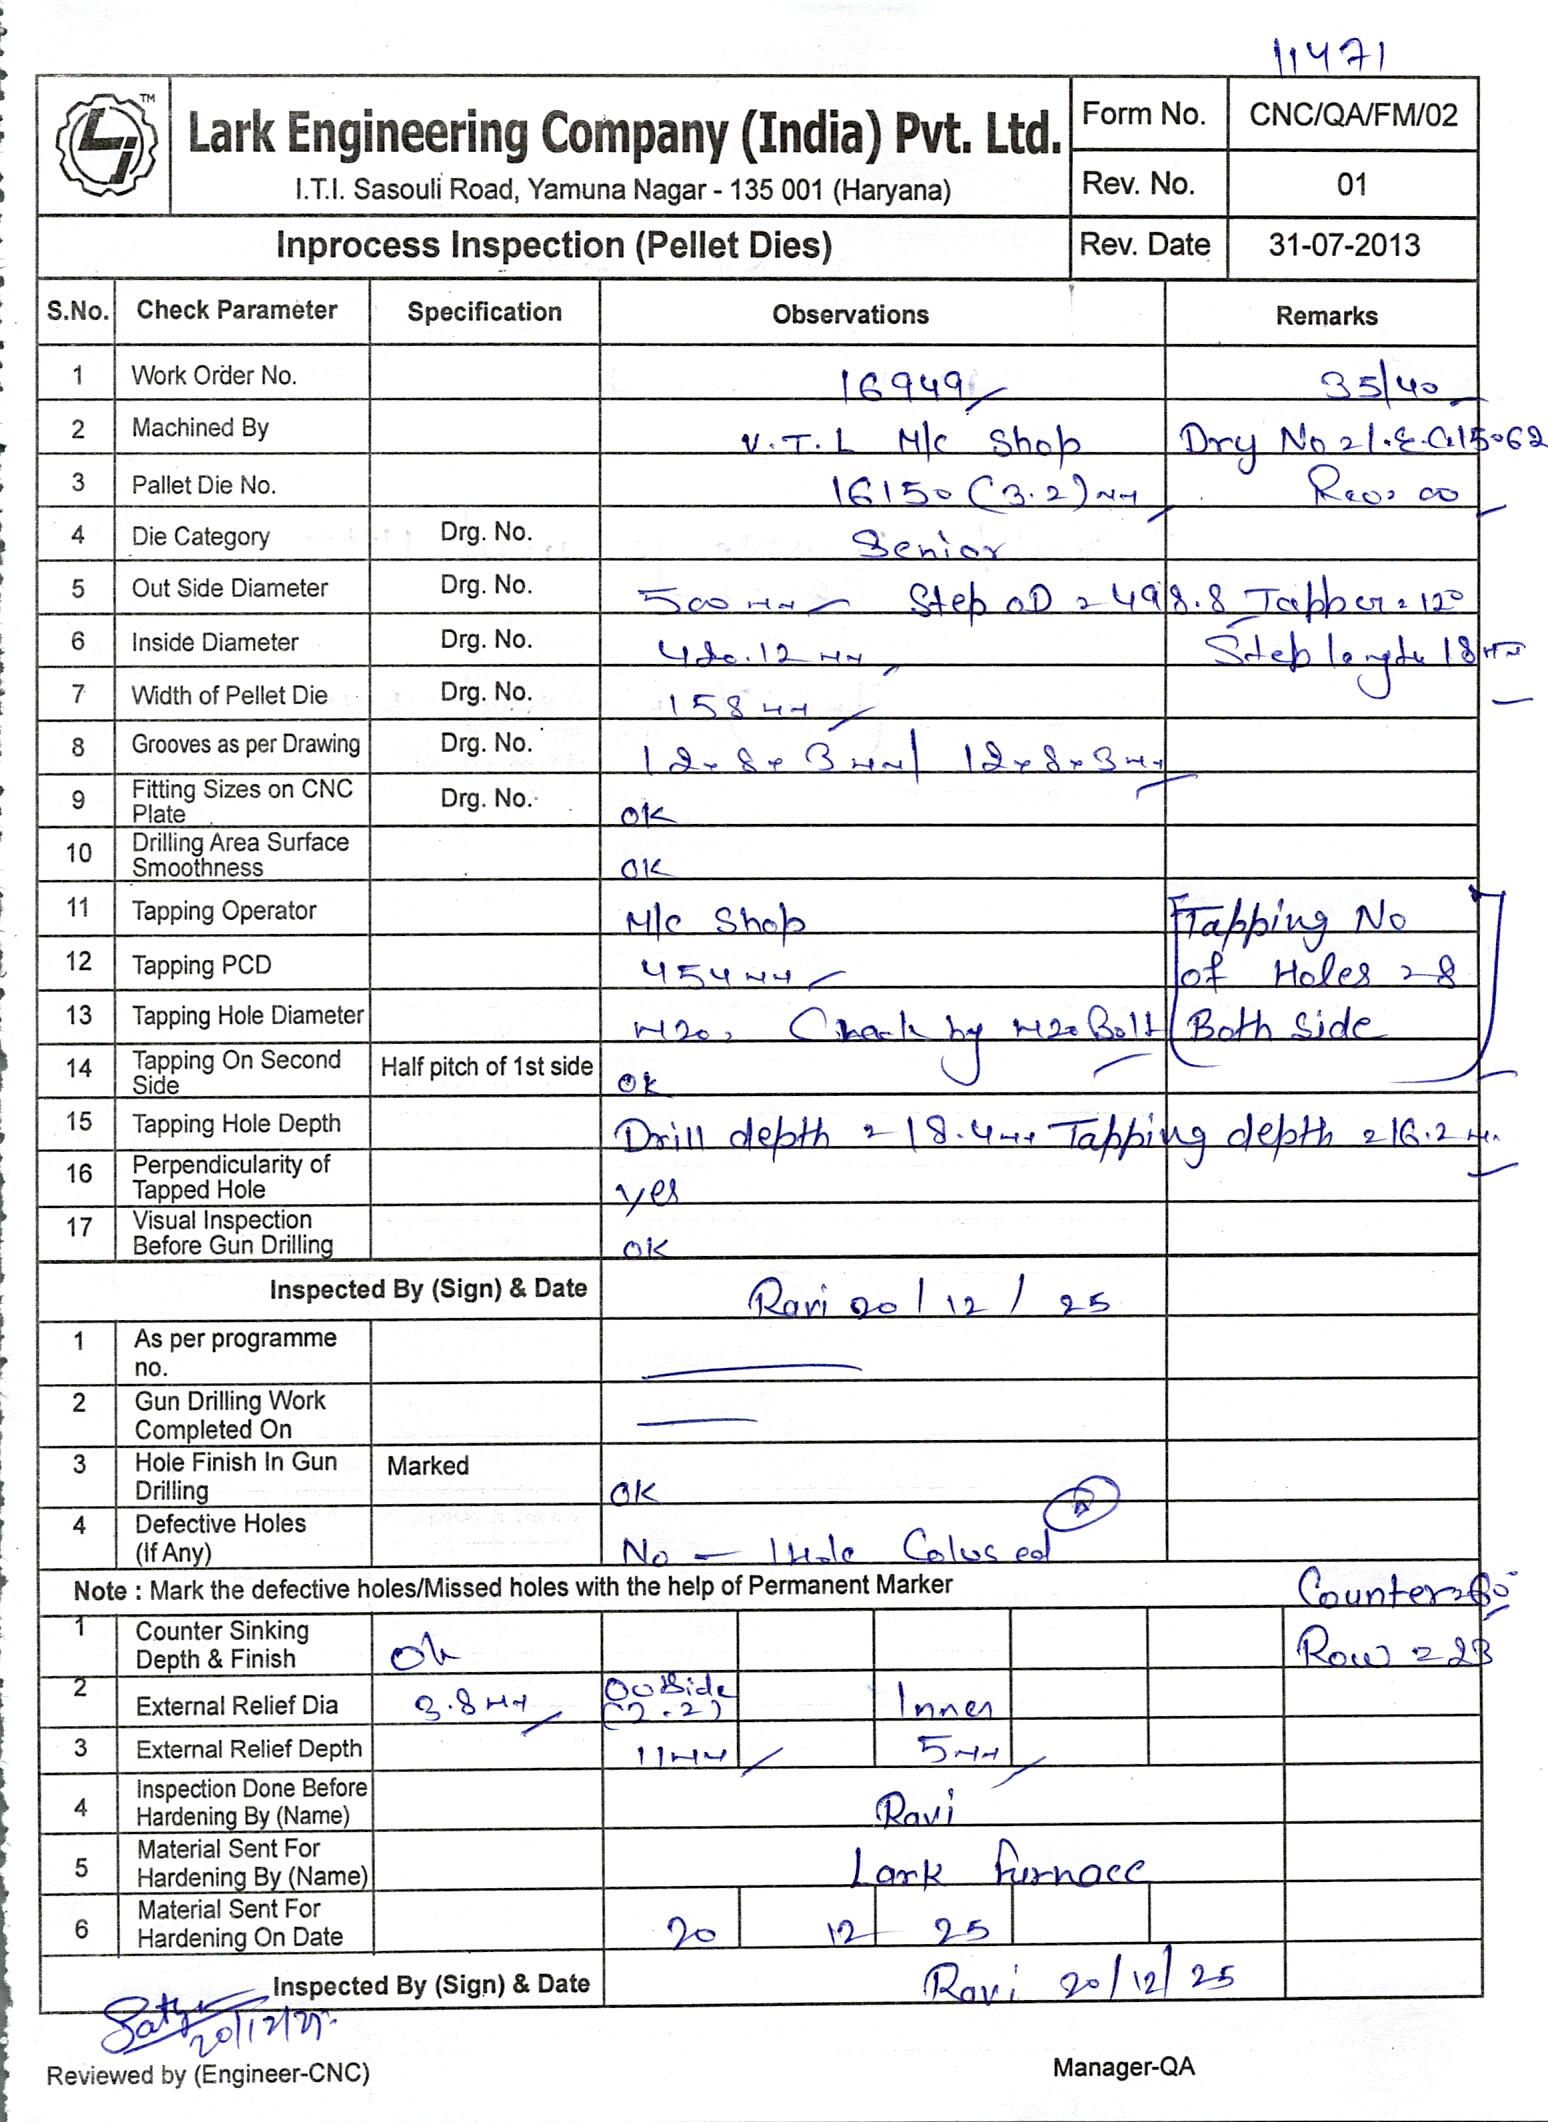 11471
TM
Lark Engineering Company (India) Pvt. Ltd.
I.T.I. Sasouli Road, Yamuna Nagar - 135 001 (Haryana)
Form No. CNC/QA/FM/02
Rev. No. 01
Inprocess Inspection (Pellet Dies) Rev. Date 31-07-2013
S.No. Check Parameter Specification Observations Remarks
1 Work Order No. 16949 35/40
2 Machined By V.T.L M/c Shop Drg No
3 Pallet Die No. 16150 (3.2) mm Rev. 00
4 Die Category Drg. No. Senior
5 Out Side Diameter Drg. No. 500 mm Step OD = 498.8 Tapper = 12°
6 Inside Diameter Drg. No. 420.12 mm Step length 18 mm
7 Width of Pellet Die Drg. No. 158 mm
8 Grooves as per Drawing Drg. No. 12 x 8 x 3 mm / 12 x 8 x 3 mm
9 Fitting Sizes on CNC Plate Drg. No. OK
10 Drilling Area Surface Smoothness OK
11 Tapping Operator M/c Shop Tapping No
12 Tapping PCD 454 mm of Holes = 8
13 Tapping Hole Diameter M20, Check by M20 Bolt Both Side
14 Tapping On Second Side Half pitch of 1st side OK
15 Tapping Hole Depth Drill depth = 18.4 mm Tapping depth = 16.2 mm
16 Perpendicularity of Tapped Hole yes
17 Visual Inspection Before Gun Drilling OK
Inspected By (Sign) & Date Ravi 20/12/25
1 As per programme no.
2 Gun Drilling Work Completed On
3 Hole Finish In Gun Drilling Marked OK
4 Defective Holes (If Any) No - 1 Hole Colused
Note : Mark the defective holes/Missed holes with the help of Permanent Marker Counter = 60°
1 Counter Sinking Depth & Finish Ok Row = 23
2 External Relief Dia 3.8 mm Outside Inner
3 External Relief Depth 11 mm 5 mm
4 Inspection Done Before Hardening By (Name) Ravi
5 Material Sent For Hardening By (Name) Lark furnace
6 Material Sent For Hardening On Date 20 12 25
Inspected By (Sign) & Date Ravi 20/12/25
Reviewed by (Engineer-CNC) Manager-QA